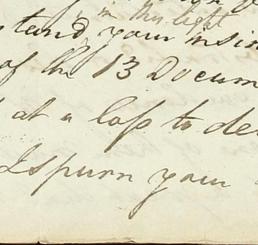 in this light
tand your insin
of the 13 Docum
at a loſs to de
I spurn your